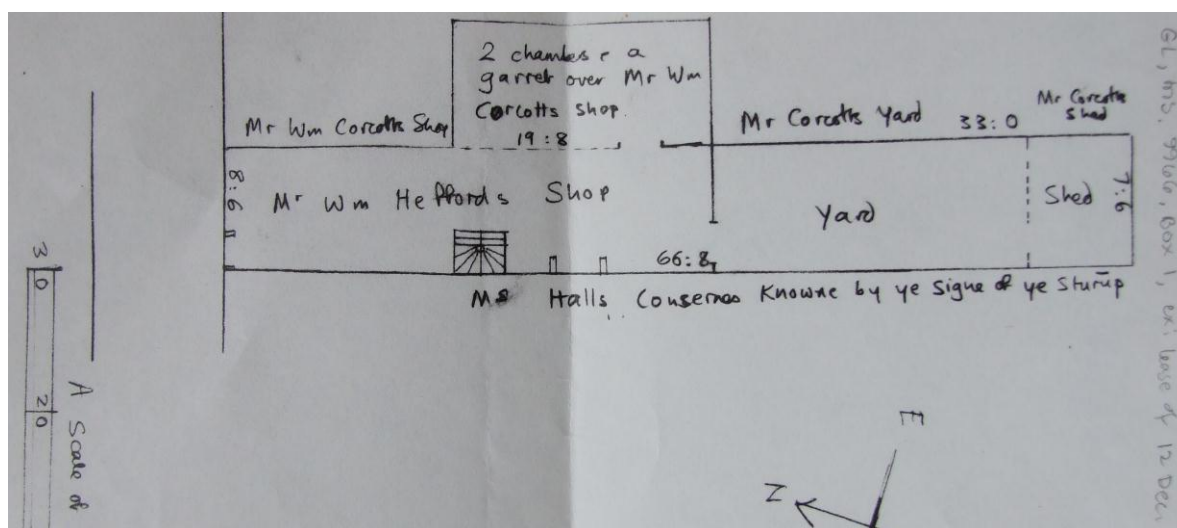 2 chambes r a
garret over Mr Wm
Corcotts shop.
19:8
Mr Wm Corcotts Shop
Mr Corcotts Yard
33:0
Mr Corcotts
Shed
8:6
Mr Wm Heffords Shop
Yard
Shed
7:6
66:8
Halls Consernes Knowne by ye Signe of ye Sturup
30
20
A Scale of
E
N
GL, ms. 9966, Box 1, ex. lease of 12 Dec.